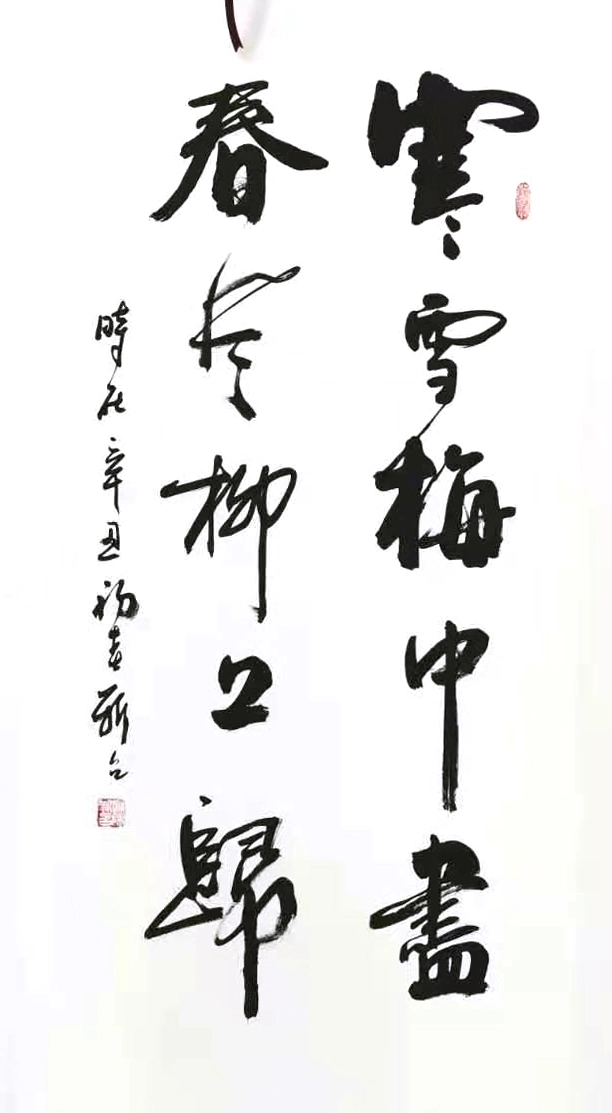 寒雪梅中盡
春風柳上歸
時在辛丑初春